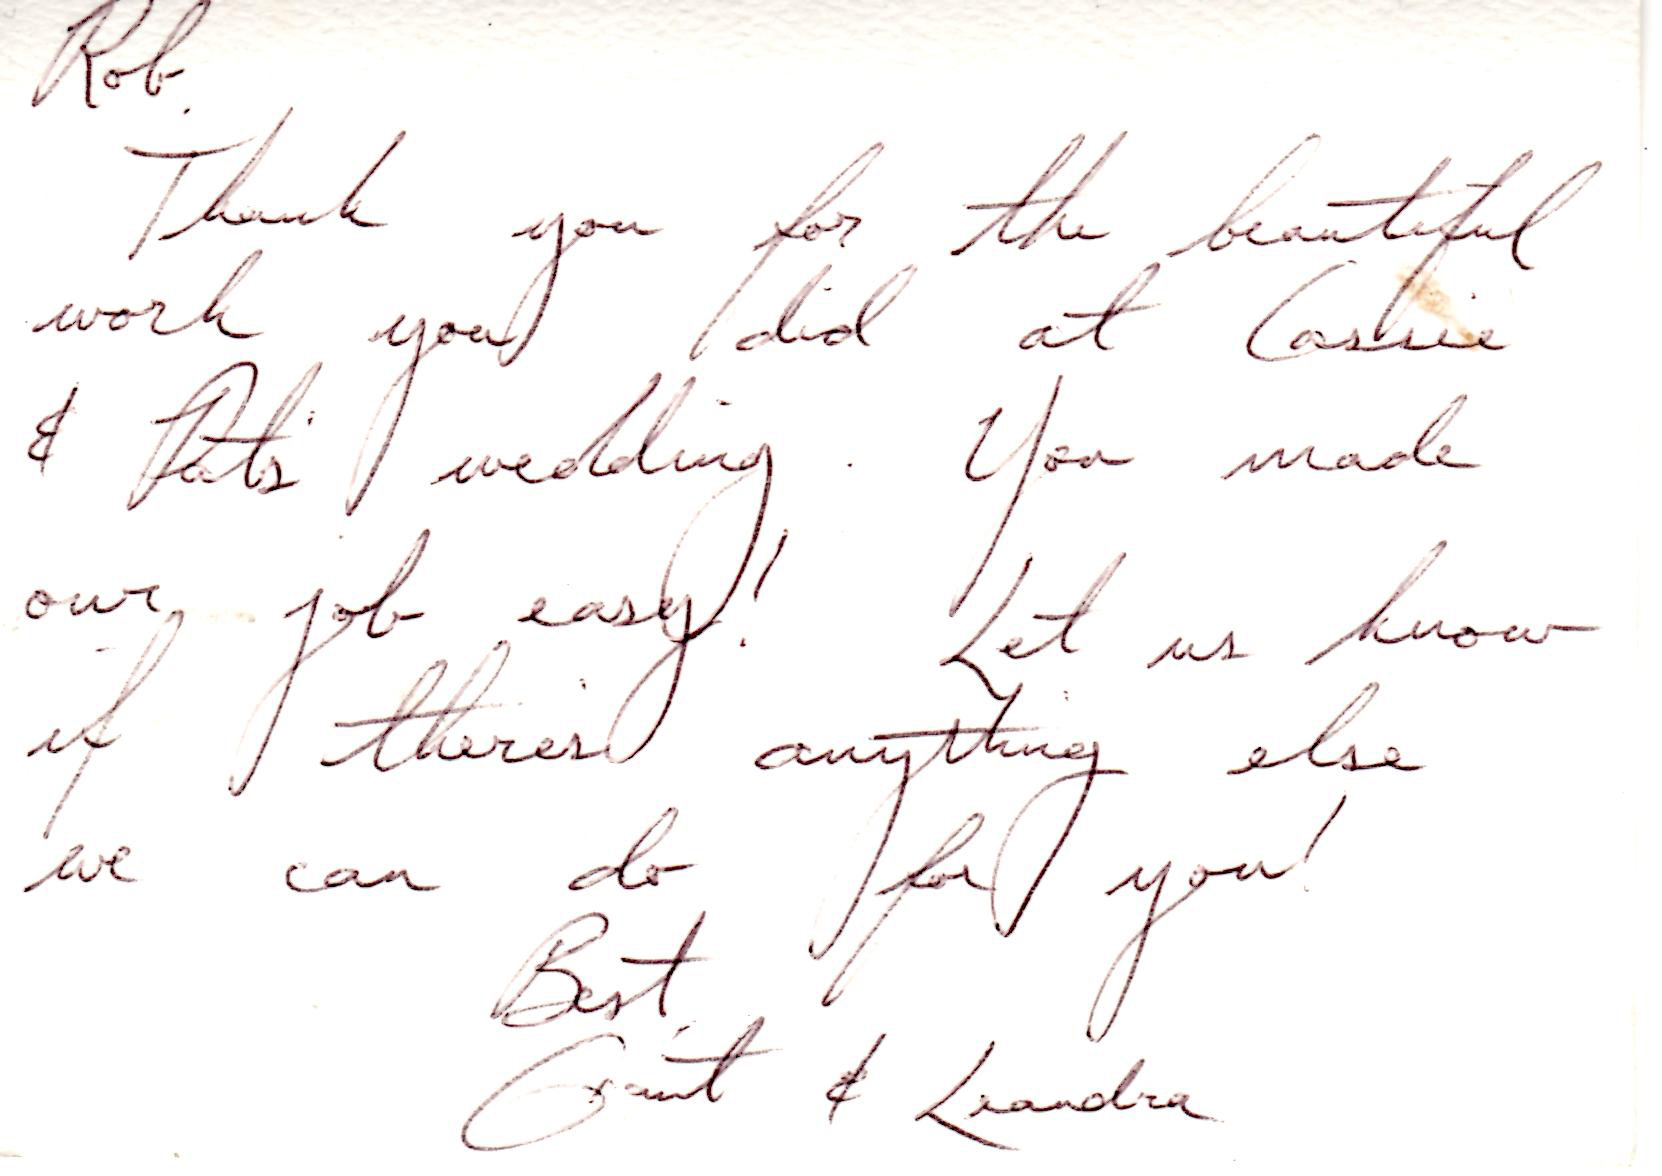 Rob,
Thank you for the beautiful
work you did at Cassie
& Pat's wedding. You made
our job easy! Let us know
if there's anything else
we can do for you!
Best,
Grant & Leandra